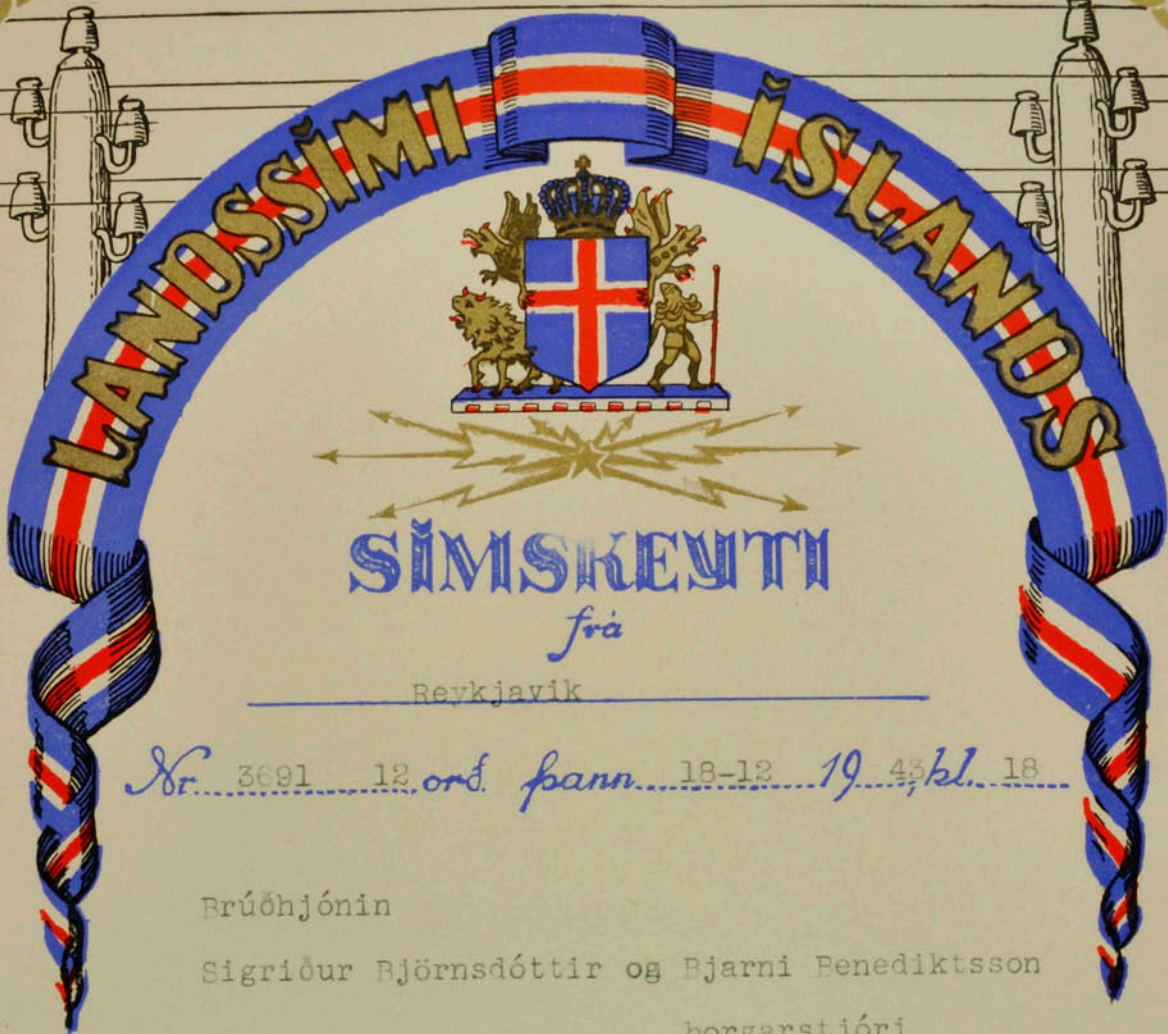 LANDSSÍMI ÍSLANDS
SÍMSKEYTI
frá
Reykjavik
Nr. 3691 12 orð. þann 18-12 19 43, kl. 18
Brúðhjónin
Sigriður Björnsdóttir og Bjarni Benediktsson
borgarstjóri